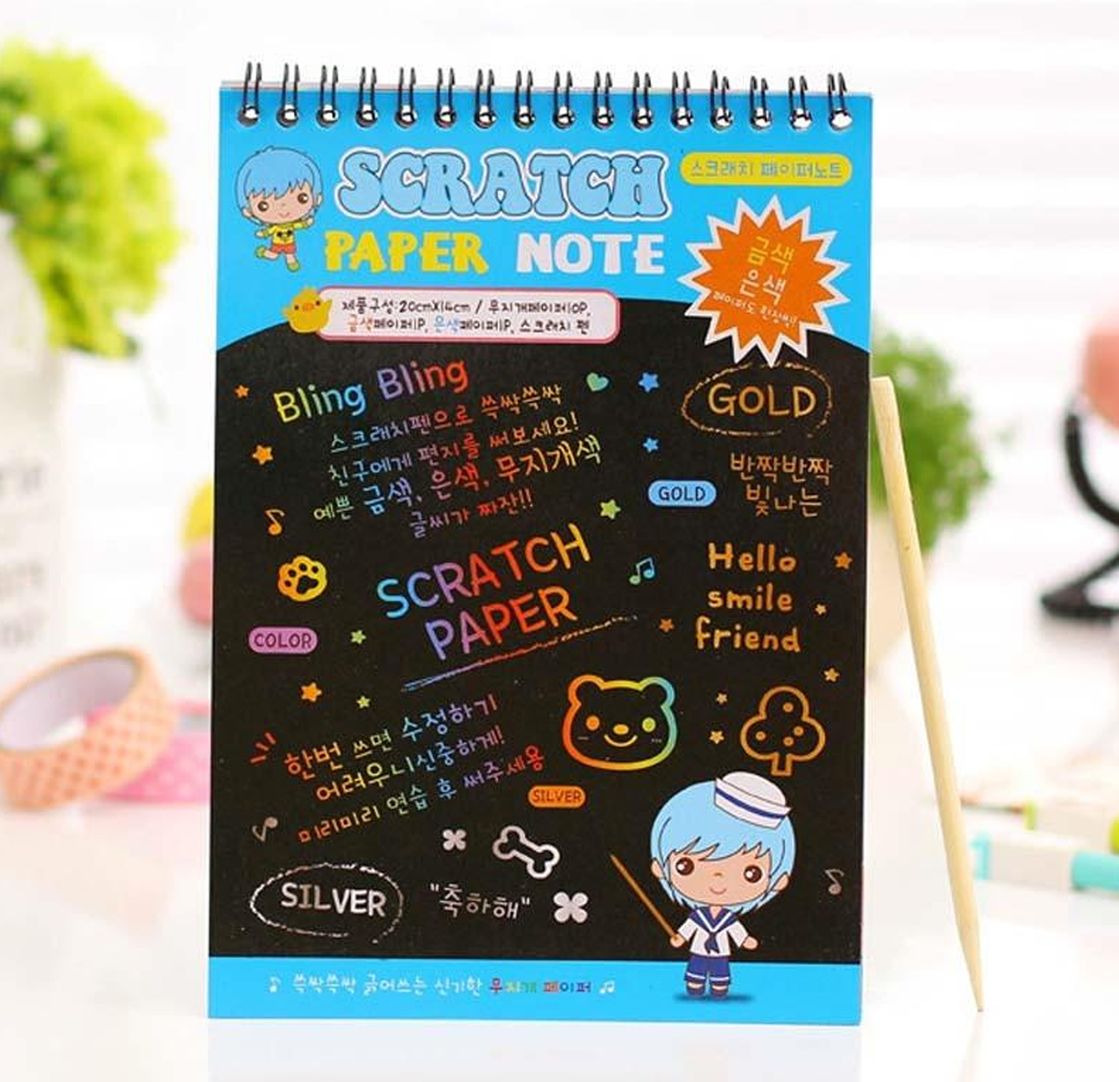 SCRATCH
스크래치 페이퍼노트
PAPER NOTE
금색
은색
페이퍼도 한장씩!!
제품구성:20cmX14cm / 무지개페이퍼10P,
금색페이퍼1P, 은색페이퍼1P, 스크래치 펜
Bling Bling
스크래치펜으로 쓱싹쓱싹
친구에게 편지를 써보세요!
예쁜 금색, 은색, 무지개색
글씨가 짜잔!!
GOLD
GOLD
반짝반짝
빛나는
SCRATCH
PAPER
COLOR
Hello
smile
friend
한번 쓰면 수정하기
어려우니신중하게!
미리미리 연습 후 써주세용
SILVER
SILVER
"축하해"
쓱싹쓱싹 긁어쓰는 신기한 무지개 페이퍼